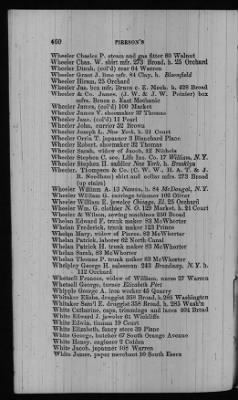 460 PIERSON'S
Wheeler Charles P. steam and gas fitter 80 Walnut
Wheeler Chas. W. shirt mfr. 273 Broad, h. 25 Orchard
Wheeler Dinah, (col'd) rear 64 Warren
Wheeler Grant J. lime mfr. 84 Clay, h. Bloomfield
Wheeler Hiram, 25 Orchard
Wheeler Jas. box mfr. Bruen c. E. Mech. h. 428 Broad
Wheeler & Co. James, (J. W. & J. W. Pointer) box
mfrs. Bruen c. East Mechanic
Wheeler James, (col'd) 100 Market
Wheeler James V. shoemaker 37 Thomas
Wheeler Jane, (col'd) 11 Pearl
Wheeler John, currier 32 Bruen
Wheeler Joseph L. New York, h. 21 Court
Wheeler Orrin T. japanner 3 Blanchard Place
Wheeler Robert, shoemaker 32 Thomas
Wheeler Sarah, widow of Jacob, 12 Nichols
Wheeler Stephen C. sec. Life Ins. Co. 17 William, N. Y.
Wheeler Stephen H. saddler New York, h. Brooklyn
Wheeler, Thompson & Co. (C. W. W., H. A. T. & J.
B. Needham) shirt and collar mfrs. 273 Broad
(up stairs)
Wheeler William A. 13 Nassau, h. 84 McDougal, N. Y.
Wheeler William G. carriage trimmer 102 Oliver
Wheeler William E. jeweler Chicago, Ill. 25 Orchard
Wheeler Wm. G. clothier N. O. 129 Market, h. 21 Court
Wheeler & Wilson, sewing machines 250 Broad
Whelan Edward F. trunk maker 83 McWhorter
Whelan Frederick, trunk maker 123 Prince
Whelan Mary, widow of Pierce, 83 McWhorter
Whelan Patrick, laborer 62 North Canal
Whelan Patrick H. trunk maker 83 McWhorter
Whelan Sarah, 83 McWhorter
Whelan Thomas P. trunk maker 83 McWhorter
Whelpley George H. salesman 243 Broadway, N. Y. h.
112 Orchard
Whetsell Frances, widow of William, nurse 27 Warren
Whetsell George, turner Elizabeth Port
Whipple George A. iron worker 45 Quarry
Whitaker Elisha, druggist 358 Broad, h. 285 Washington
Whitaker Sam'l E. druggist 358 Broad, h. 285 Wash'n
White Catharine, caps, trimmings and laces 404 Broad
White Edward J. jeweler 61 Wickliffe
White Edwin, tinman 19 Court
White Elizabeth, fancy store 39 Plane
White George, butcher 67 South Orange Avenue
White Henry, engineer 2 Colden
White Jacob, japanner 168 Warren
White James, paper merchant 90 South Essex